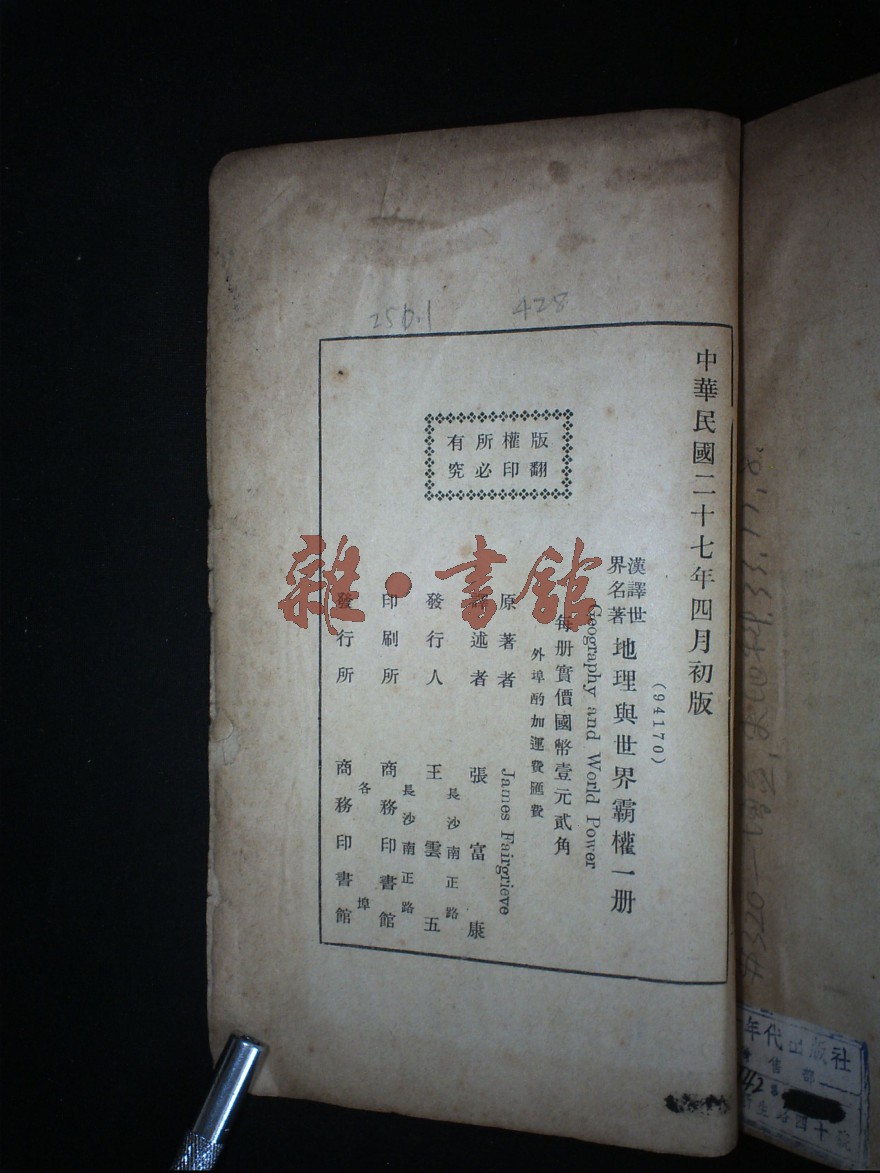 256.1 428
中華民國二十七年四月初版
(94170)
漢譯世界名著 地理與世界霸權一册
Geography and World Power
每册實價國幣壹元貳角
外埠酌加運費匯費
原著者 James Fairgrieve
譯述者 張富康
發行人 長沙南正路 王雲五
印刷所 長沙南正路 商務印書館
發行所 各埠 商務印書館
版權所有
翻印必究
雜·書館
年代出版社